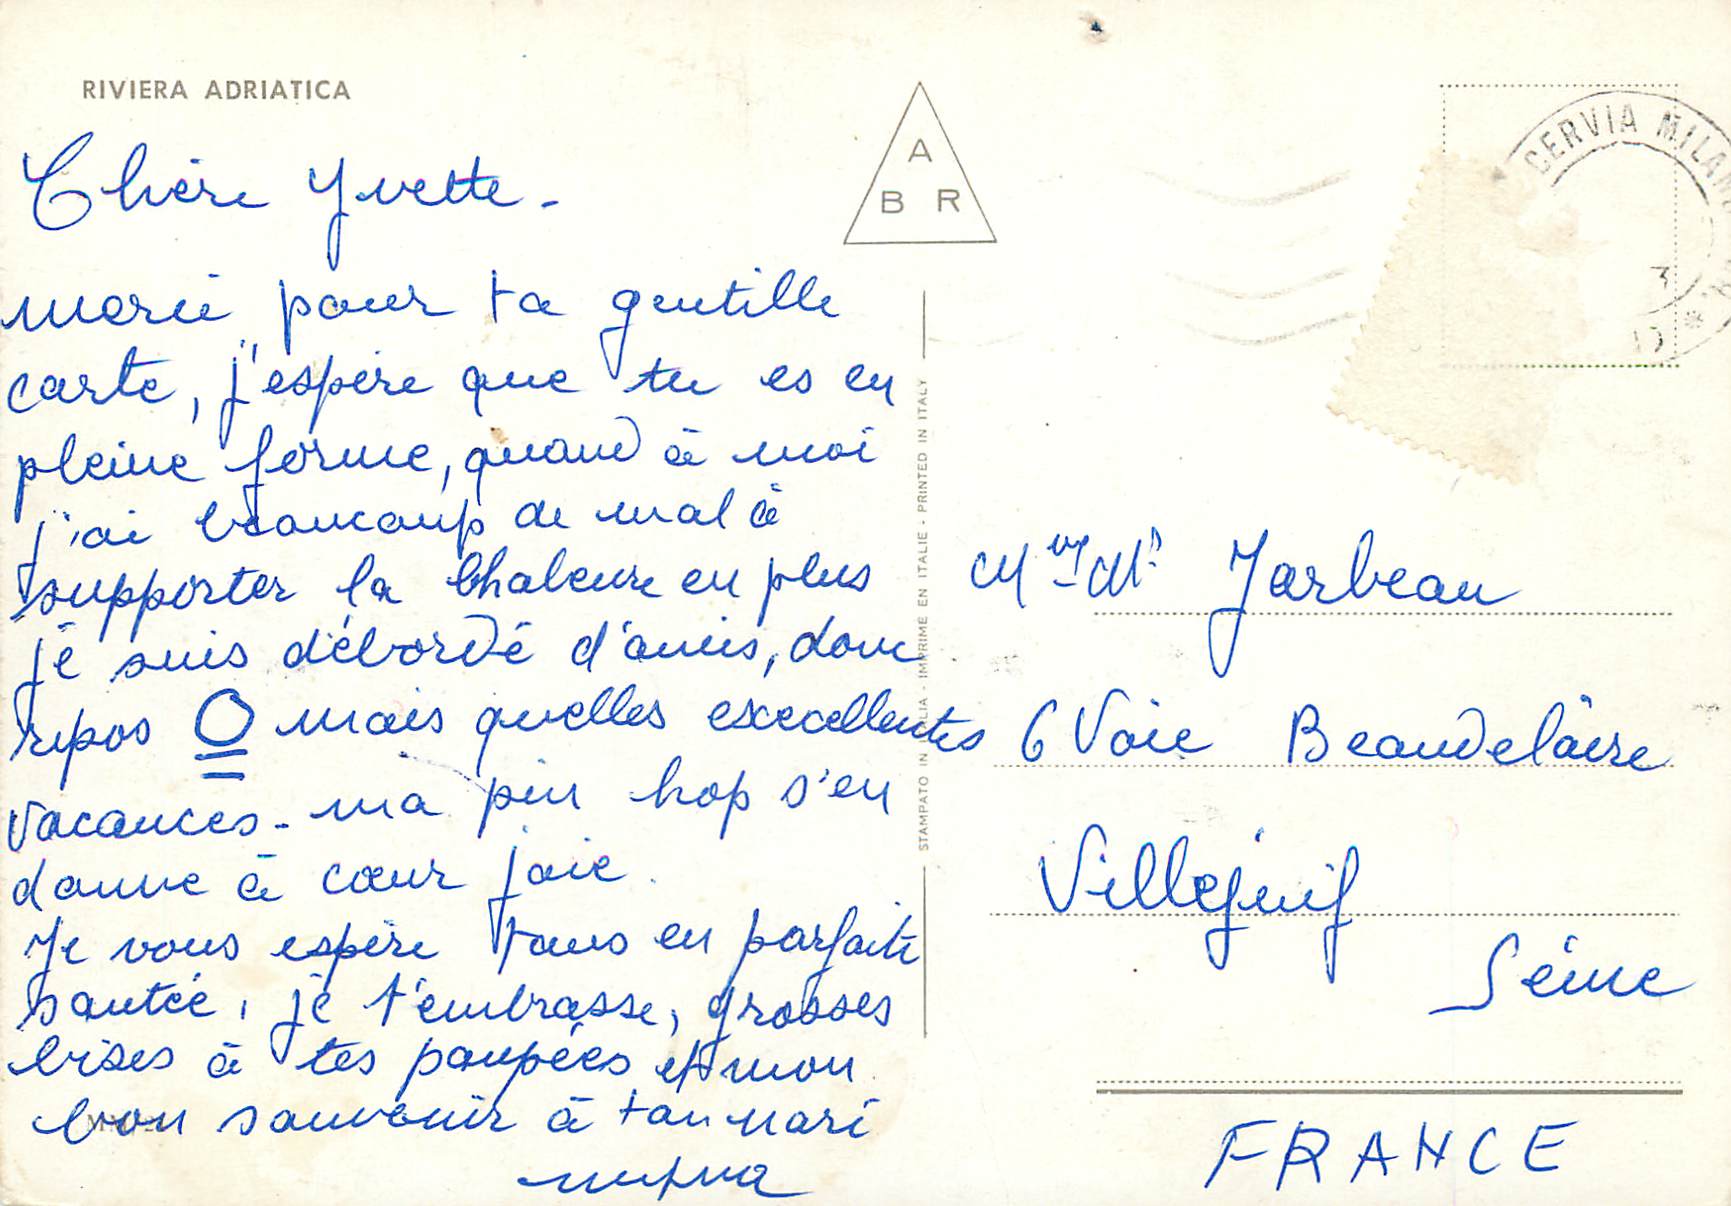 RIVIERA ADRIATICA
Chère Yvette -
merci pour ta gentille
carte, j'espère que tu es en
pleine forme, quand à moi
j'ai beaucoup de mal à
supporter la chaleure en plus
je suis débordé d'amis, donc
repos O mais quelles excecellentes
vacances - ma pin hop s'en
donne à cœur joie.
Je vous espère tous en parfaite
santée, je t'embrasse, grosses
bises à tes poupées et mon
bon souvenir à ton mari
A
B R
STAMPATO IN ITALIA - IMPRIME EN ITALIE - PRINTED IN ITALY
CERVIA MILAN
Mme Mr Jarbeau
6 Voie Beaudelaire
Villejuif
Seine
FRANCE